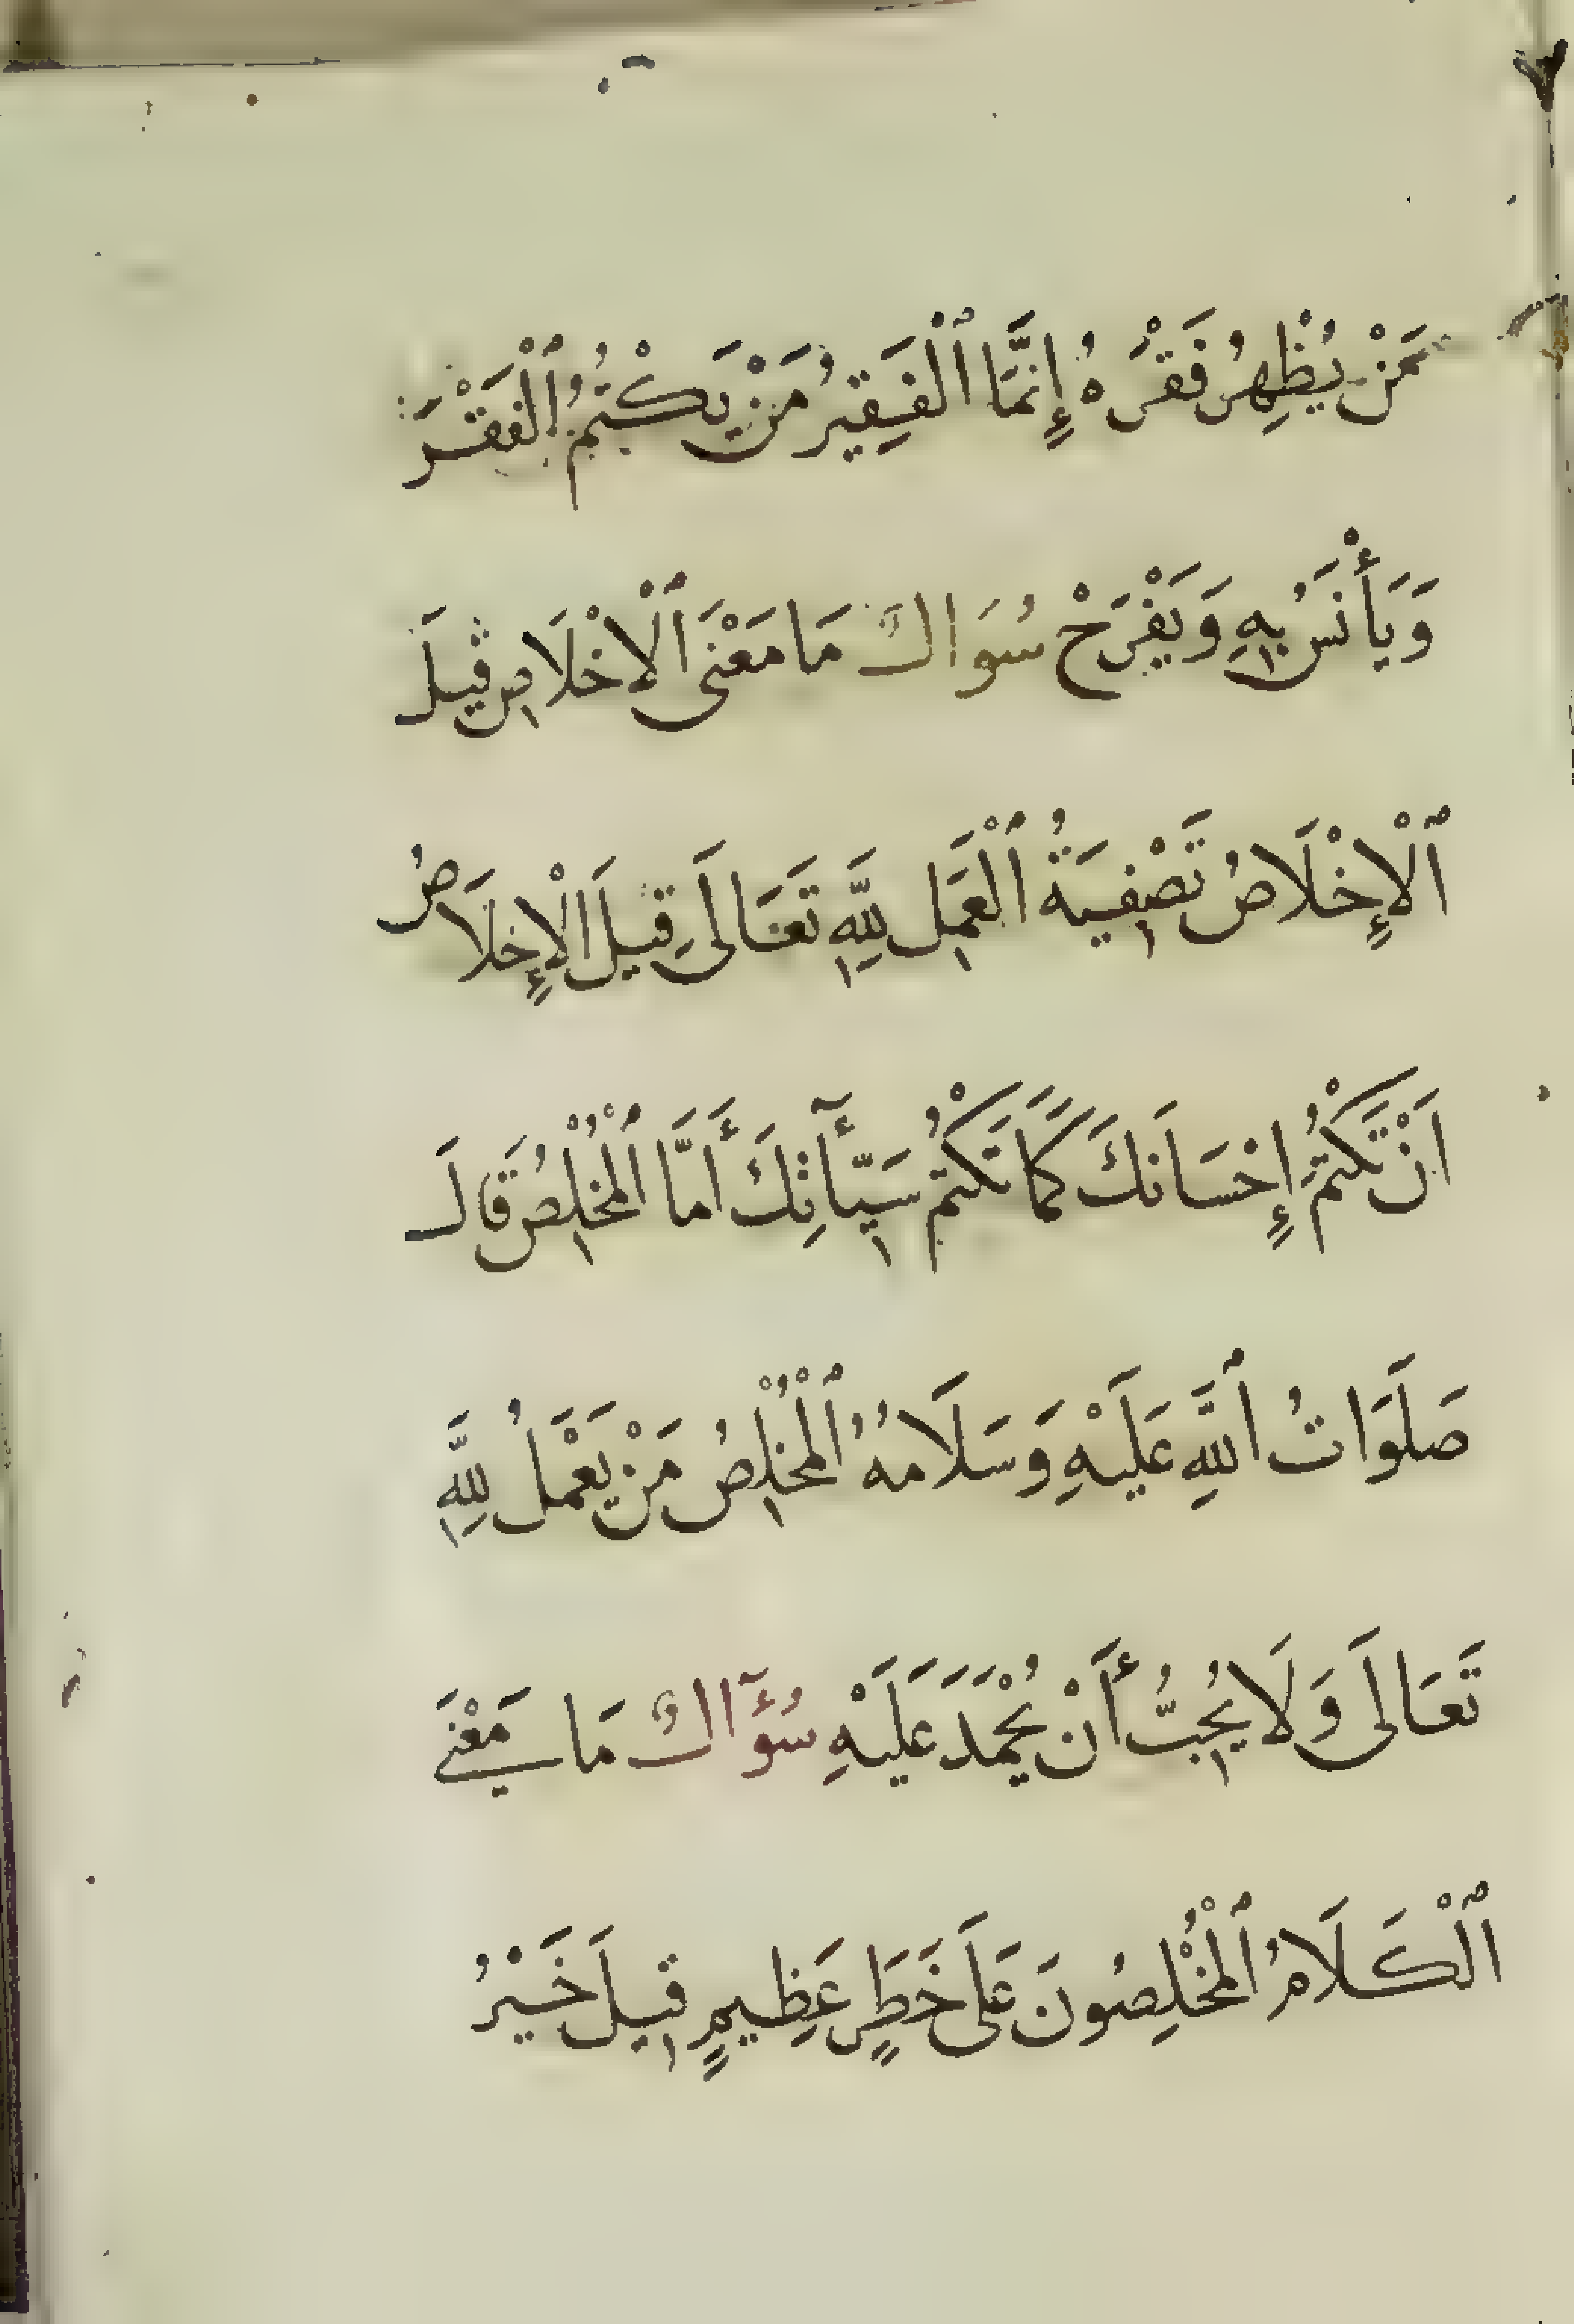 مَنْ يُظْهِرُ فَقْرَهُ إِنَّمَا ٱلْفَقِيرُ مَنْ يَكْتُمُ ٱلْفَقْرَ
وَيَأْنَسُ بِهِ وَيَفْرَحْ سُوَالٌ مَا مَعْنَى ٱلْاخْلَاصِ قِيلَ
ٱلْإِخْلَاصُ تَصْفِيَةُ ٱلْعَمَلِ لِلَّهِ تَعَالَى قِيلَ الْإِخلَاصُ
اَنْ تَكْتُمَ إِحْسَانَكَ كَمَا تَكْتُمُ سَيِّأٓتِكَ أَمَّا ٱلْمُخْلِصُ قَالَ
صَلَوَاتُ ٱللَّهِ عَلَيْهِ وَسَلَامُهُ ٱلْمُخْلِصُ مَنْ يَعْمَلُ لِلَّهِ
تَعَالَى وَلَا يُحِبُّ أَنْ يُحْمَدَ عَلَيْهِ سُؤَآلٌ مَا مَعْنَى
ٱلْكَلَامُ ٱلْمُخْلِصُونَ عَلَى خَطَرٍ عَظِيمٍ قِيلَ خَيْرُ